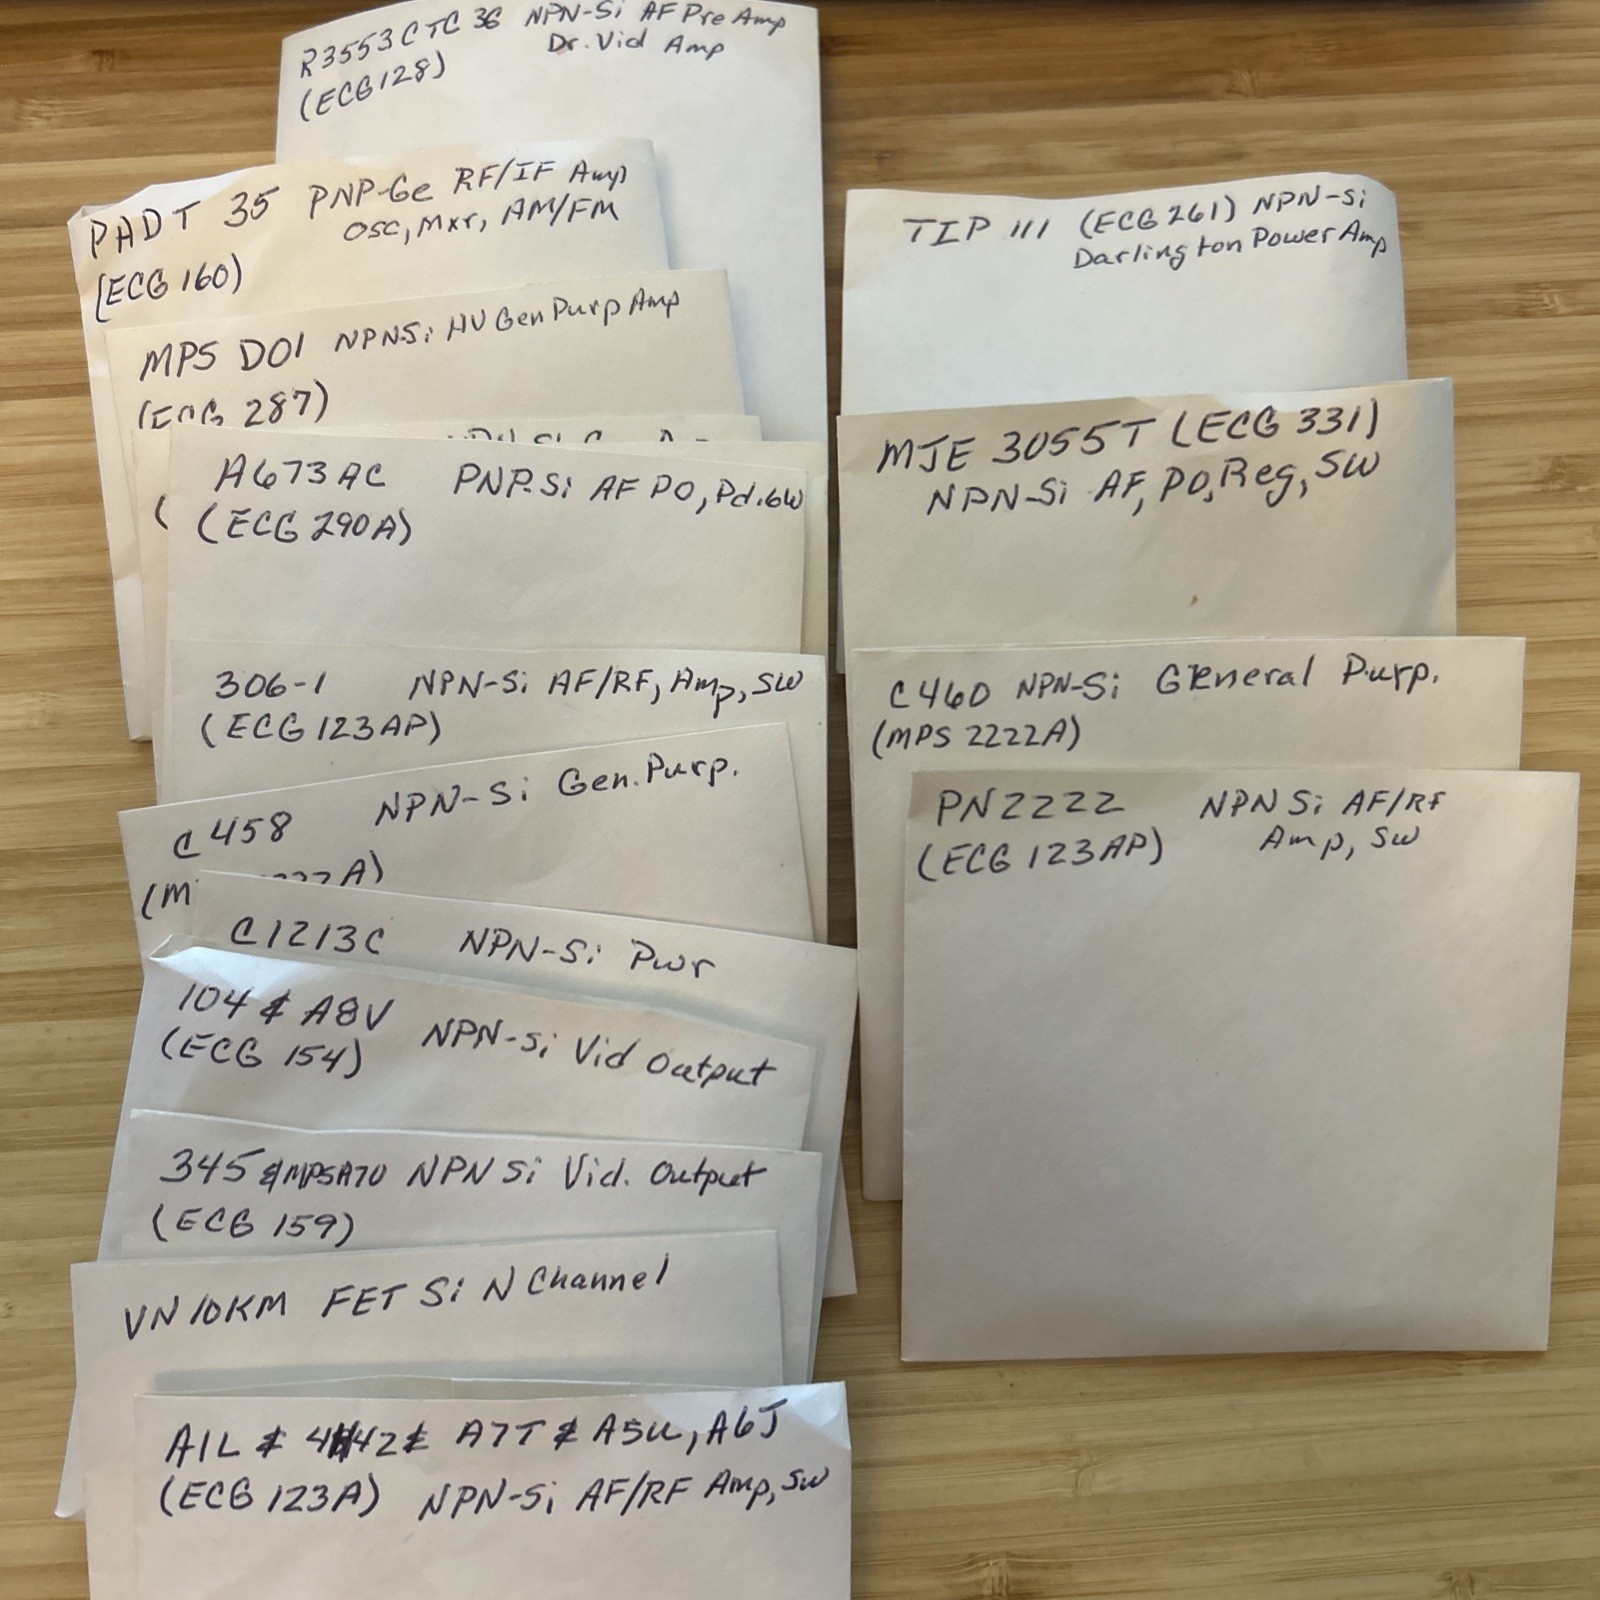 R3553 CTC 36 NPN-Si AF Pre Amp
Dr. Vid Amp
(ECG 128)
PADT 35 PNP-Ge RF/IF Amp
Osc, Mxr, AM/FM
(ECG 160)
MPS D01 NPN-Si HV Gen Purp Amp
(ECG 287)
A673AC PNP-Si AF PO, Pd.6W
(ECG 290A)
306-1 NPN-Si AF/RF, Amp, SW
(ECG 123AP)
C458 NPN-Si Gen. Purp.
C1213C NPN-Si Pwr
104 & A8V NPN-Si Vid Output
(ECG 154)
345 & MPSA70 NPN Si Vid. Output
(ECG 159)
VN10KM FET Si N Channel
A1L & 442 & A7T & A5U, A6J
(ECG 123A) NPN-Si AF/RF Amp, SW
TIP 111 (ECG 261) NPN-Si
Darlington Power Amp
MJE 3055T (ECG 331)
NPN-Si AF, PO, Reg, SW
C460 NPN-Si General Purp.
(MPS 2222A)
PN2222 NPN Si AF/RF
(ECG 123AP) Amp, SW